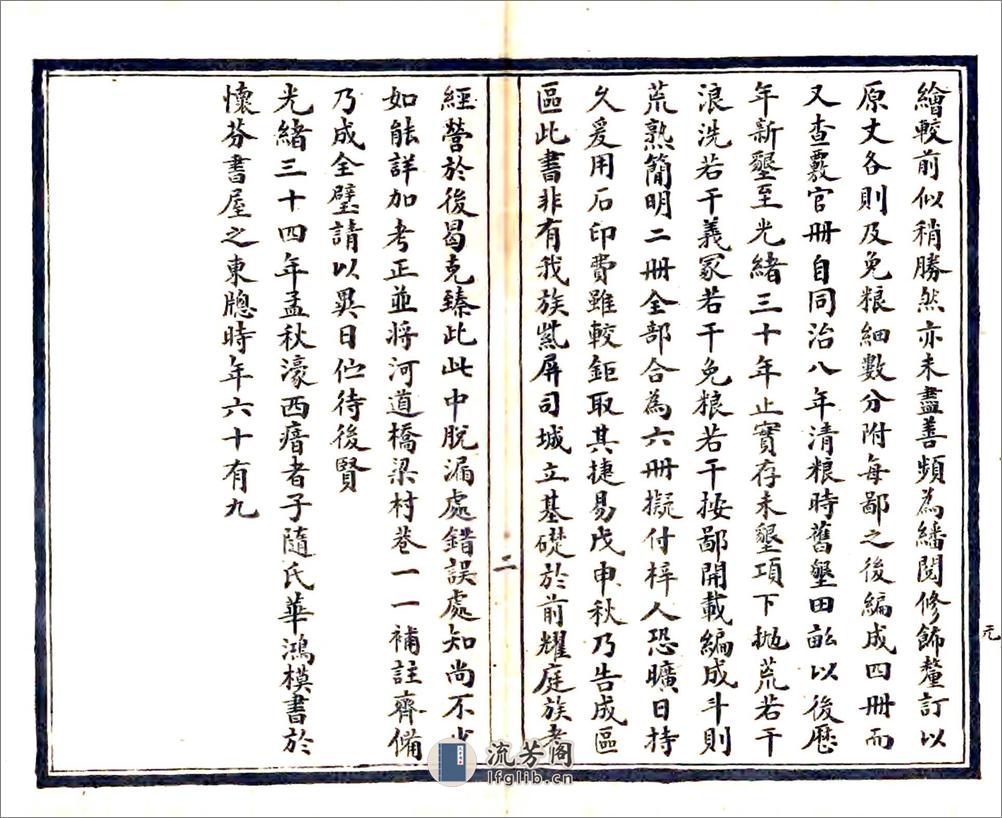 繪較前似稍勝然亦未盡善頻為繙閱修飾釐訂以
原丈各則及免粮細數分附每鄙之後編成四冊而
又查覈官冊自同治八年清粮時舊墾田畝以後歷
年新墾至光緒三十年止實存未墾項下拋荒若干
浪洗若干義冢若干免粮若干按鄙開載編成斗則
荒熟簡明二冊全部合為六冊擬付梓人恐曠日持
久爰用石印費雖較鉅取其捷易戊申秋乃告成區
區此書非有我族紫屏司城立基礎於前耀庭族孝
二
經營於後曷克臻此此中脫漏處錯誤處知尚不少
如能詳加考正並將河道橋梁村巷一一補註齊備
乃成全璧請以異日伫待後賢
光緒三十四年孟秋濠西瘖者子隨氏華鴻模書於
懷芬書屋之東牕時年六十有九
元
流芳阁
lfglib.cn